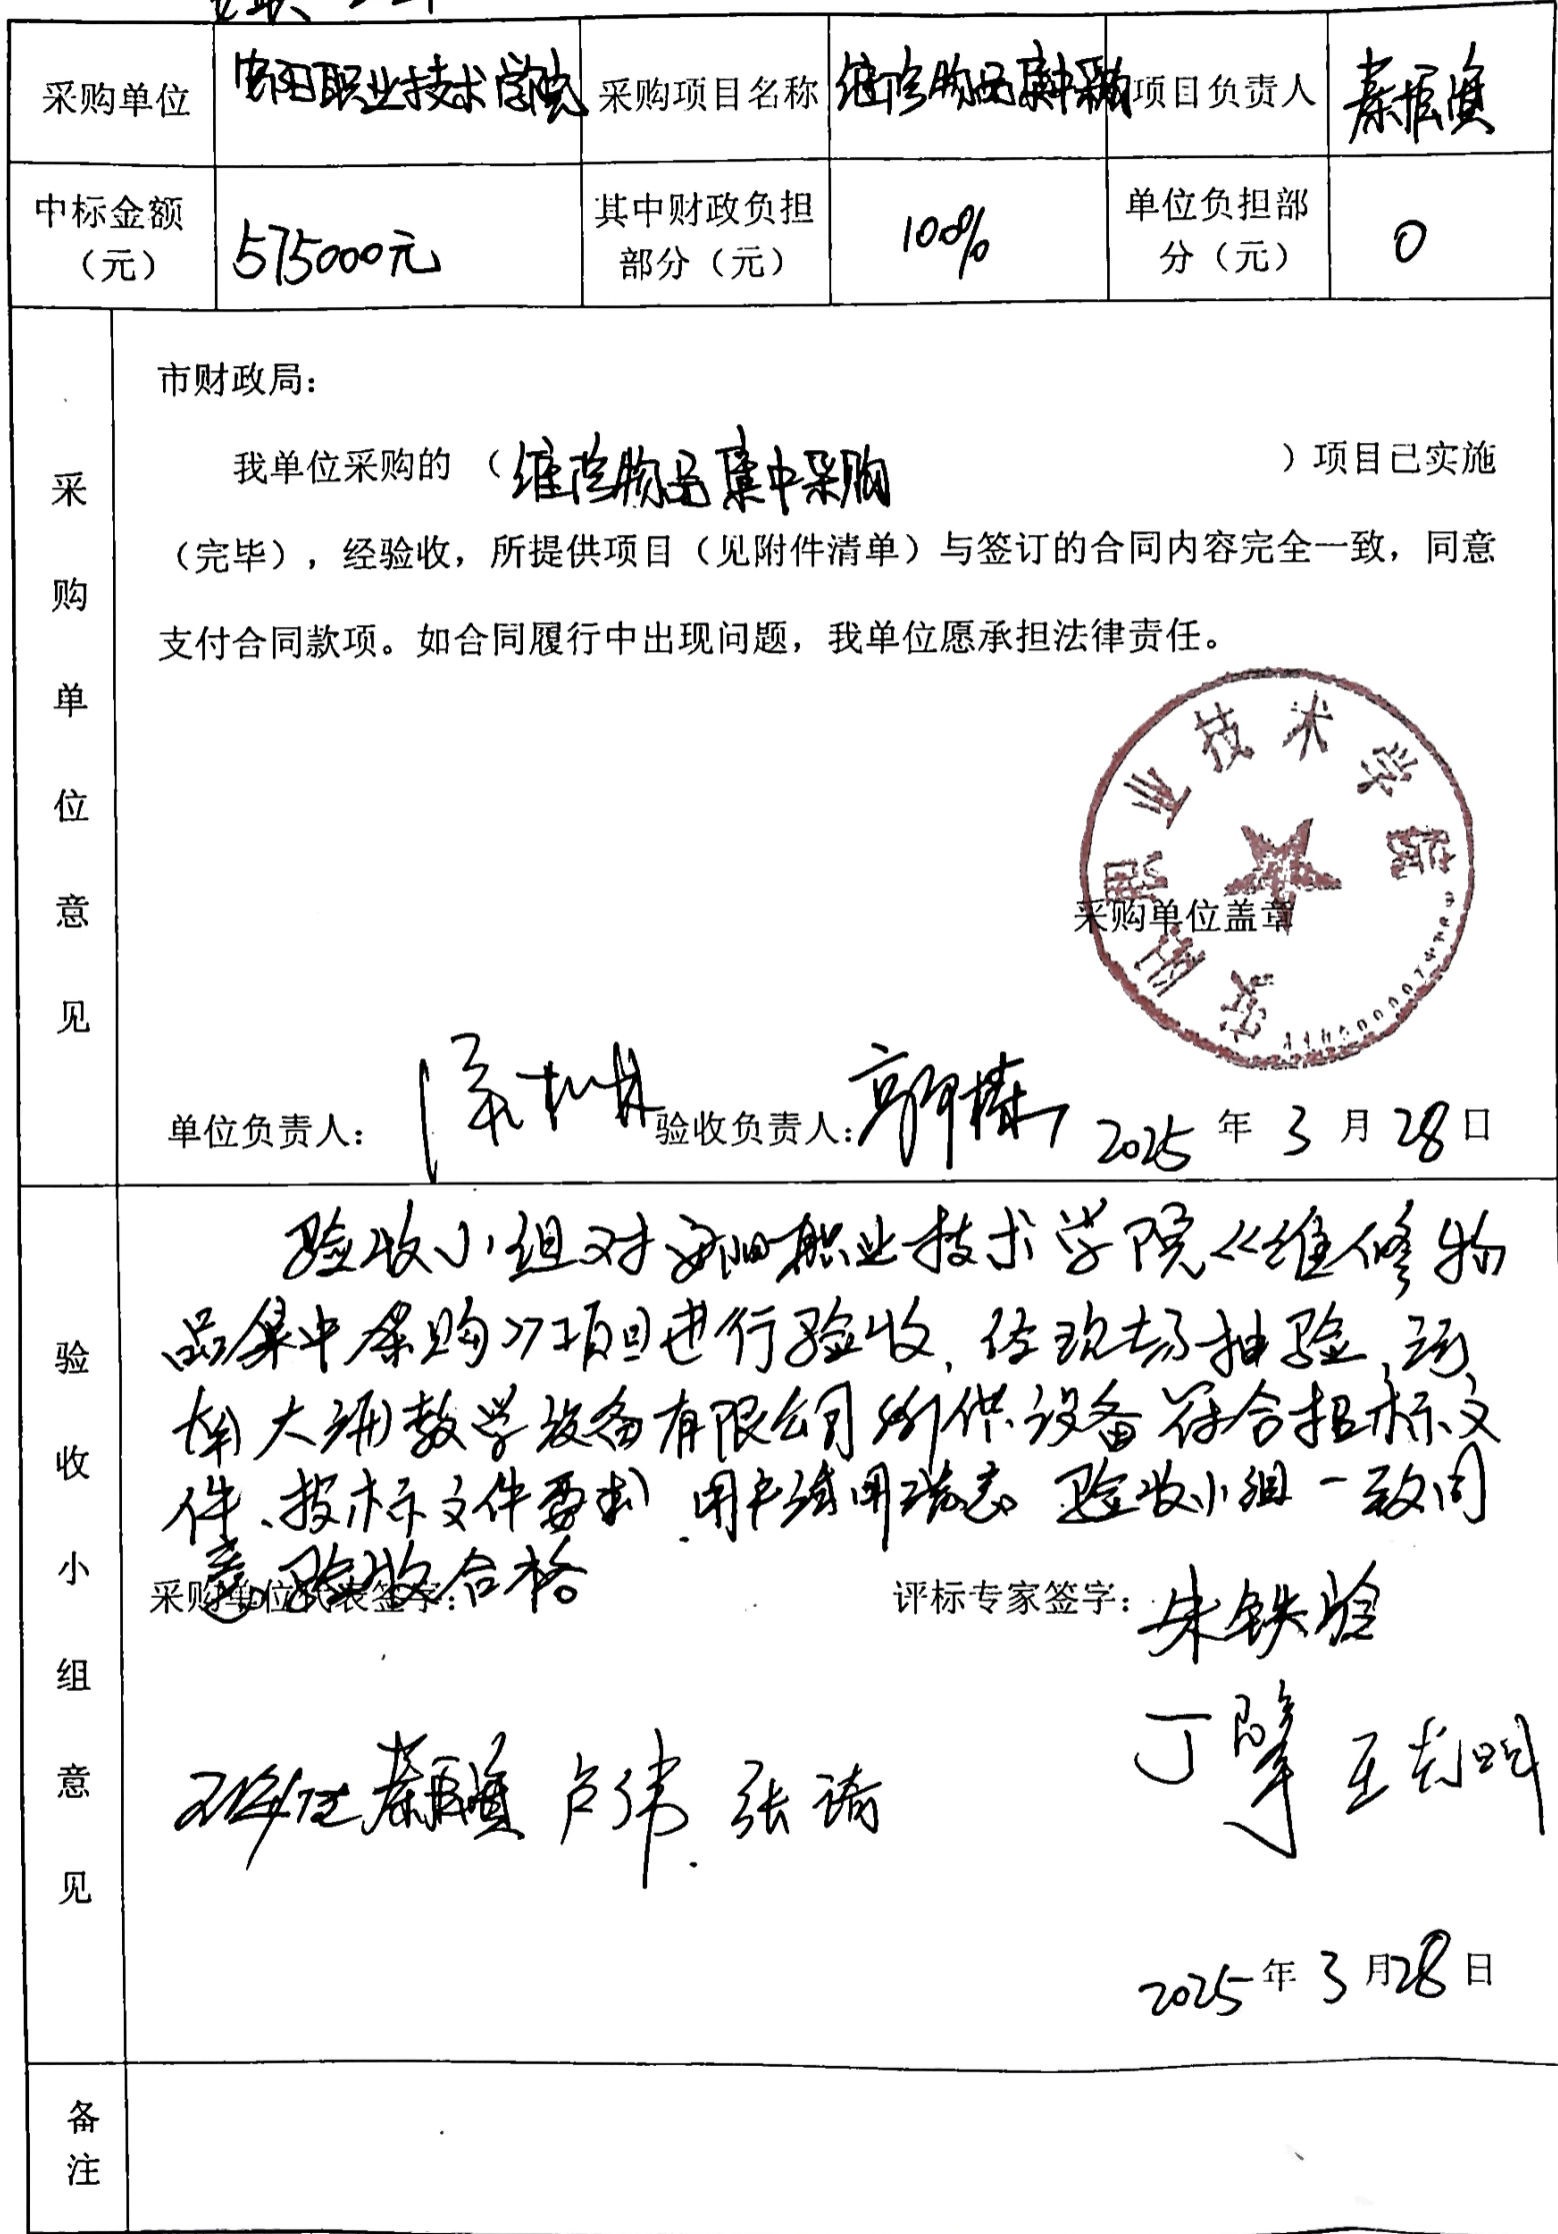 采购单位 安阳职业技术学院 采购项目名称 维修物品集中采购 项目负责人
中标金额（元） 575000元 其中财政负担部分（元） 100% 单位负担部分（元） 0
采购单位意见
市财政局：
我单位采购的（维修物品集中采购）项目已实施
（完毕），经验收，所提供项目（见附件清单）与签订的合同内容完全一致，同意
支付合同款项。如合同履行中出现问题，我单位愿承担法律责任。
安阳职业技术学院
采购单位盖章
单位负责人： 验收负责人： 2025年3月28日
验收小组意见
验收小组对安阳职业技术学院《维修物
品集中采购》项目进行验收，经现场抽验，河
南大湖教学设备有限公司所供设备符合招标文
件、投标文件要求，用户试用满意。验收小组一致同
意验收合格
采购单位代表签字： 评标专家签字：
朱铁
丁 王
卢伟 张
2025年3月28日
备注